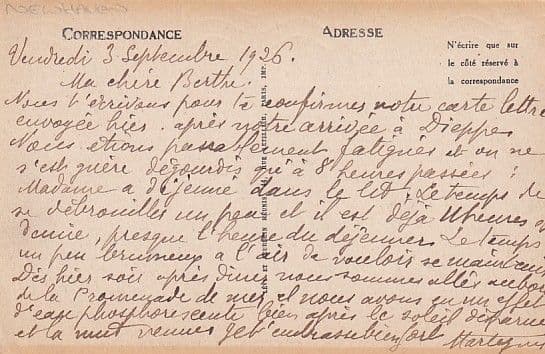 NEWHAVEN
CORRESPONDANCE
ADRESSE
N'écrire que sur
le côté réservé à
la correspondance
Vendredi 3 Septembre 1926.
Ma chère Berthe.
Nous t'écrivons pour te confirmer notre carte lettre
envoyée hier. après notre arrivée à Dieppe
Nous étions passablement fatignés et on ne
s'est guère dégourdis qu'à 8 heures passées :
Madame a déjeuné dans le lit, Le temps de
se débrouiller un peu et il est déjà 11 heures
demie, presque l'heure du déjeuner. Le temps
un peu brumeux a l'air de vouloir se maintenir
Dès hier soir après diner nous sommes allés au bord
de la Promenade de mer et nous avons eu un effet
d'eau phosphorescente bien après le soleil disparu
et la nuit venue. Je t'embrasse bien fort
PARIS, IMP.